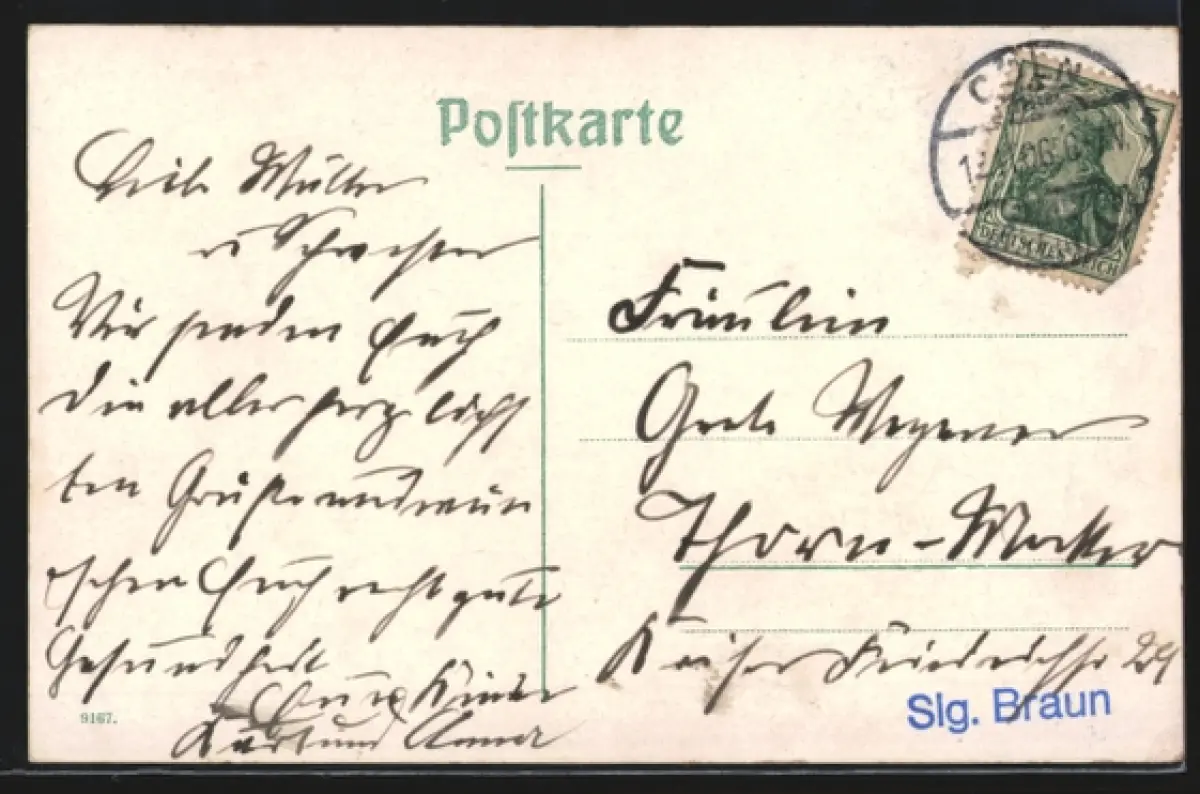 Postkarte
Liebe Mutter
u Schwester
Wir senden Euch
die aller herzlichs
ten Grüße und wün
schen Euch recht gute
Gesundheit
Eure Kinder
Kurt und Anna
9167.
CÖLN
06
DEUTSCHES REICH
Fräulein
Grete Wegener
Thorn - Mocker
Kaiser Friedrichstr
Slg. Braun